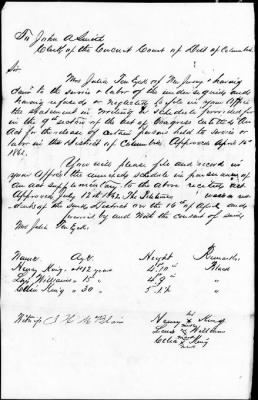 To John A Smith
Clerk of the Circuit Court of Dist of Columbia
Sir
Mrs Julia Ten Eyck of N. Jersey having
claim to the service or labor of the undersigned and
having refused or neglected to file in your Office
the Statement in Writing or schedule provided for
in the 9th section of the act of Congress entitled An
Act for the release of certain persons held to service or
labor in the District of Columbia Approved April 16th
1862.
You will please file and record in
your Office the annexed schedule in pursuance of
An act supplementary to the above recited act
Approved July 12th 1862. The Petitioners were residents
of the said District on the 16th of April and
previous by and with the consent of said
Mrs Julia Ten Eyck.
Name Age Height Remarks
Henry King 12 years 4.10 Black
Williams 15 " 4.9 "
King " 30 " 5.1½ "
Witness
his
Henry X King
mark
Williams
mark
King
mark